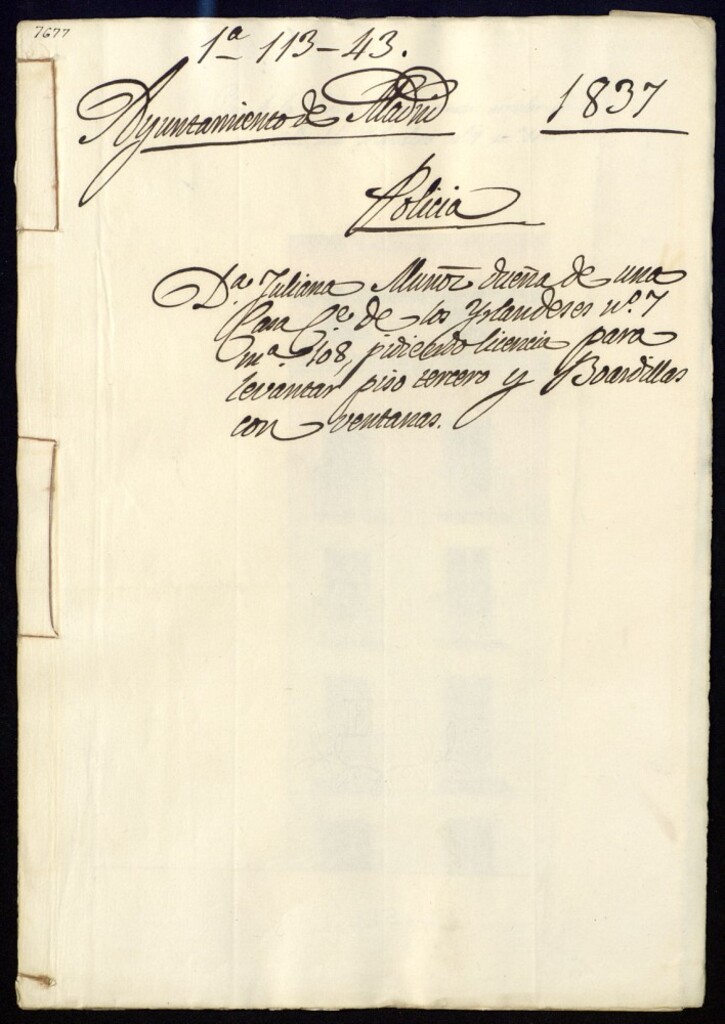 7677
1ª 113-43.
Ayuntamiento de Madrid 1837
Policia
Dª Juliana Muñoz dueña de una
Casa C.e de los Yrlandeses nº. 7
mª 108, pidiendo licencia para
levantar piso tercero y Boardillas
con ventanas.